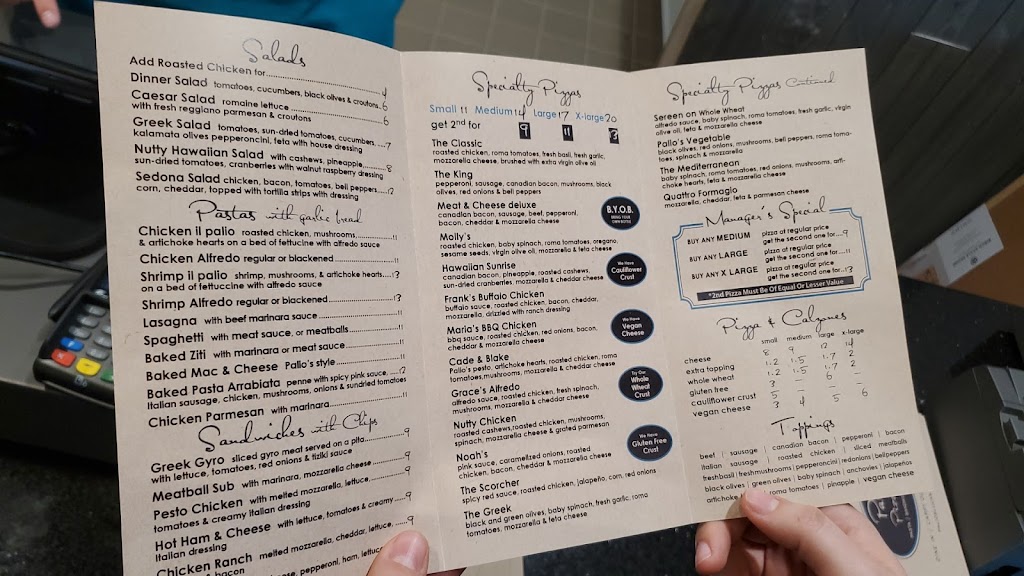 Salads
Add Roasted Chicken for..............4
Dinner Salad tomatoes, cucumbers, black olives & croutons..6
Caesar Salad romaine lettuce..............6
with fresh reggiano parmesan & croutons
Greek Salad tomatoes, sun-dried tomatoes, cucumbers,....7
kalamata olives pepperoncini, feta with house dressing
Nutty Hawaiian Salad with cashews, pineapple,........8
sun-dried tomatoes, cranberries with walnut raspberry dressing
Sedona Salad chicken, bacon, tomatoes, bell peppers.....12
corn, cheddar, topped with tortilla strips with dressing
Pastas with garlic bread
Chicken il palio roasted chicken, mushrooms..........11
& artichoke hearts on a bed of fettucine with alfredo sauce
Chicken Alfredo regular or blackened..........11
Shrimp il palio shrimp, mushrooms, & artichoke hearts....13
on a bed of fettuccine with alfredo sauce
Shrimp Alfredo regular or blackened..........13
Lasagna with beef marinara sauce..........11
Spaghetti with meat sauce, or meatballs..........11
Baked Ziti with marinara or meat sauce..........11
Baked Mac & Cheese Palio's style..........11
Baked Pasta Arrabiata penne with spicy pink sauce,....12
Italian sausage, chicken, mushrooms, onions & sundried tomatoes
Chicken Parmesan with marinara..........11
Sandwiches with Chips
Greek Gyro sliced gyro meat served on a pita..........9
with lettuce, tomatoes, red onions & tiziki sauce
Meatball Sub with marinara, mozzarella cheese..........9
Pesto Chicken with melted mozzarella, lettuce,..........9
tomatoes & creamy Italian dressing
Hot Ham & Cheese with lettuce, tomatoes & creamy....9
Italian dressing
Chicken Ranch melted mozzarella, cheddar, lettuce,....9
& bacon
cheese, pepperoni, ham, lettuce
Specialty Pizzas
Small 11 Medium 14 Large 17 X-large 20
get 2nd for 9 11 13
The Classic
roasted chicken, roma tomatoes, fresh basil, fresh garlic,
mozzarella cheese, brushed with extra virgin olive oil
The King
pepperoni, sausage, canadian bacon, mushrooms, black
olives, red onions & bell peppers
Meat & Cheese deluxe
canadian bacon, sausage, beef, pepperoni,
bacon, cheddar & mozzarella cheese
Molly's
roasted chicken, baby spinach, roma tomatoes, oregano,
sesame seeds, virgin olive oil, mozzarella & feta cheese
Hawaiian Sunrise
canadian bacon, pineapple, roasted cashews,
sun-dried cranberries, mozzarella & cheddar cheese
Frank's Buffalo Chicken
buffalo sauce, roasted chicken, bacon, cheddar,
mozzarella, drizzled with ranch dressing
Maria's BBQ Chicken
bbq sauce, roasted chicken, red onions, bacon,
cheddar & mozzarella cheese
Cade & Blake
Palio's pesto, artichoke hearts, roasted chicken, roma
tomatoes, mushrooms, mozzarella & cheddar cheese
Grace's Alfredo
alfredo sauce, roasted chicken, fresh spinach,
mushrooms, mozzarella & cheddar cheese
Nutty Chicken
roasted cashews, roasted chicken, mushrooms,
spinach, mozzarella cheese & grated parmesan
Noah's
pink sauce, caramelized onions, roasted
chicken, bacon, cheddar & mozzarella cheese
The Scorcher
spicy red sauce, roasted chicken, jalapeño, corn, red onions
The Greek
black and green olives, baby spinach, fresh garlic, roma
tomatoes, mozzarella & feta cheese
B.Y.O.B.
BRING YOUR
OWN WINE
We Have
Cauliflower
Crust
We Have
Vegan
Cheese
Try Our
Whole
Wheat
Crust
We Have
Gluten Free
Crust
Specialty Pizzas Continued
Sereen on Whole Wheat
alfredo sauce, baby spinach, roma tomatoes, fresh garlic, virgin
olive oil, feta & mozzarella cheese
Palio's Vegetable
black olives, red onions, mushrooms, bell peppers, roma toma-
toes, spinach & mozzarella
The Mediterranean
baby spinach, roma tomatoes, red onions, mushrooms, arti-
choke hearts, feta & mozzarella cheese
Quattro Formagio
mozzarella, cheddar, feta & parmesan cheese
Manager's Special
BUY ANY MEDIUM pizza at regular price
get the second one for...9
BUY ANY LARGE pizza at regular price
get the second one for....11
BUY ANY X LARGE pizza at regular price
get the second one for...13
*2nd Pizza Must Be Of Equal Or Lesser Value
Pizza & Calzones
small medium large x-large
cheese 8 9 12 14
extra topping 1.2 1.5 1.7 2
whole wheat 1.2 1.5 1.7 2
gluten free 3 – 6 –
cauliflower crust 5 – – –
vegan cheese 3 4 5 6
Toppings
beef | sausage | canadian bacon | pepperoni | bacon
italian sausage | roasted chicken | sliced meatballs
fresh basil | fresh mushrooms | pepperoncini | red onions | bell peppers
black olives | green olives | baby spinach | anchovies | jalapeños
artichoke roma tomatoes | pinapple | vegan cheese